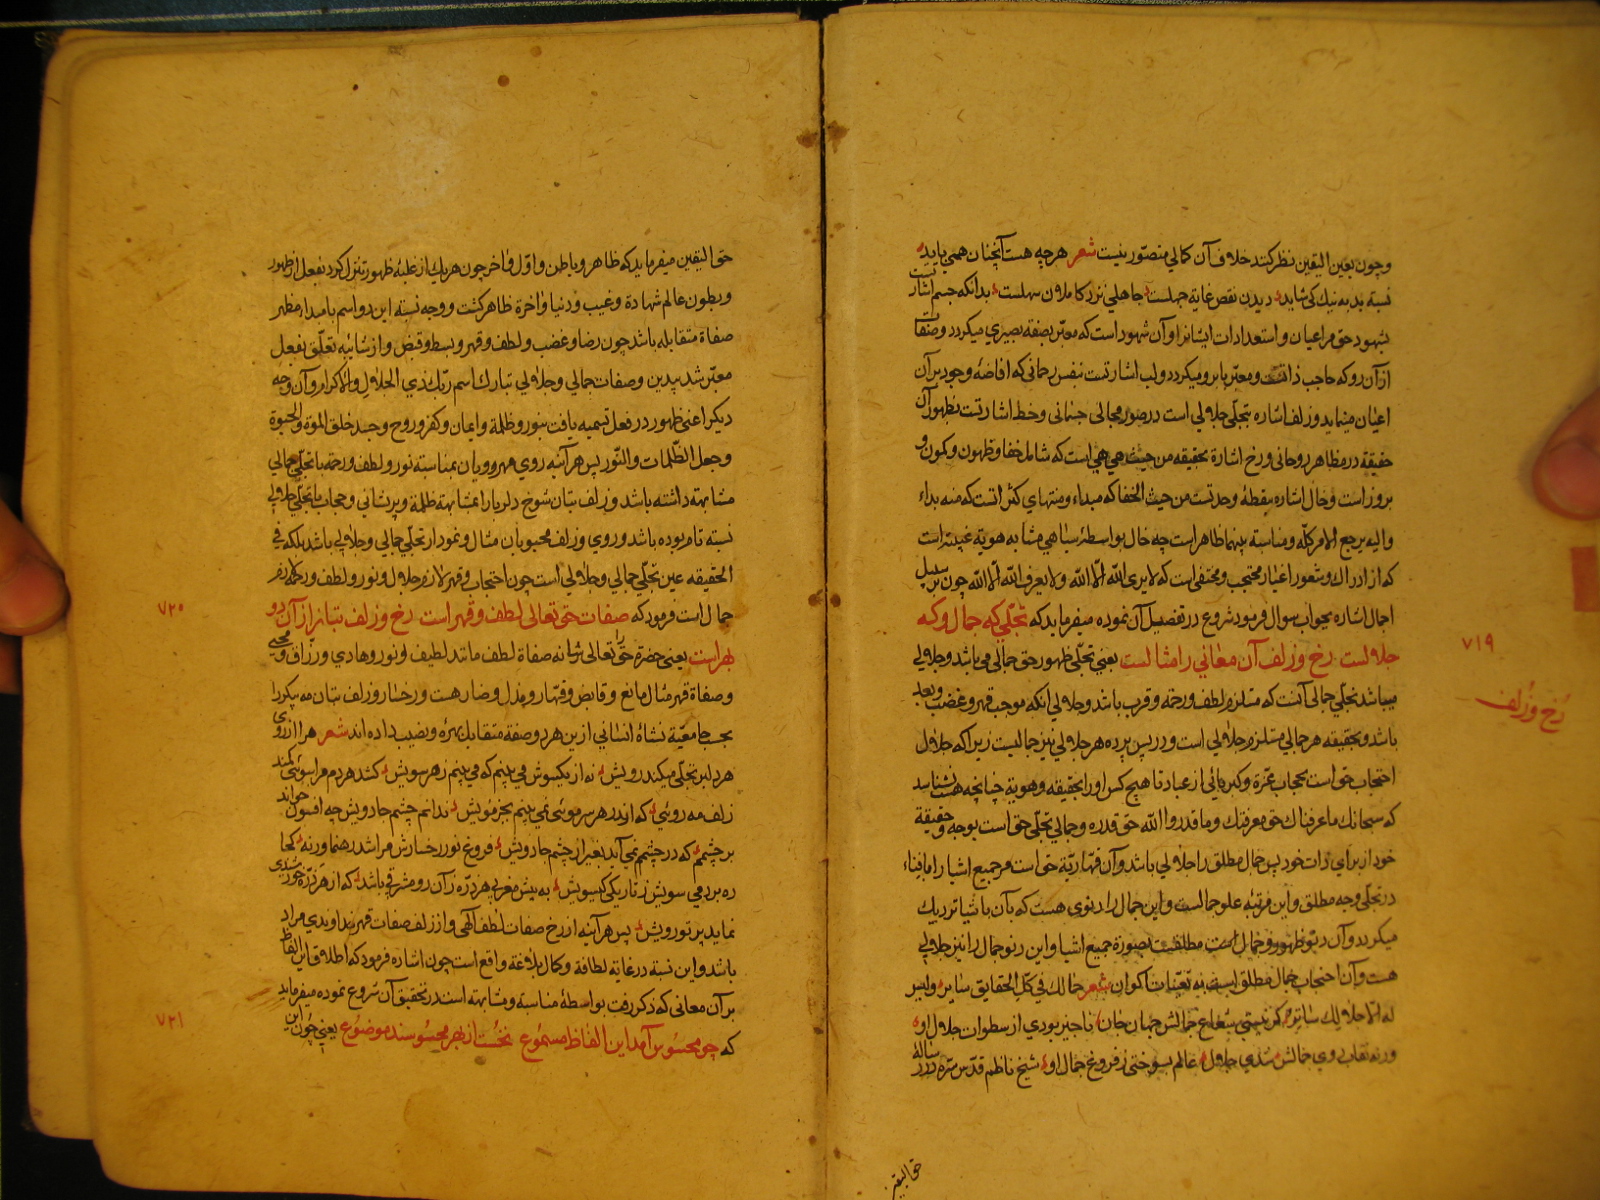 وچون بعین الیقین نظر کند خلاف آن کمالی متصور نیست شعر هرچه هست آنچنان همی باید
نسبة بد به نیك کی شاید دیدن نقص غایة جهلست جاهلی نزد کاملان سهلست بدانکه چشم اشارتست
بشهود حق مر اعیان و استعدادات ایشانرا وآن شهود است که معبر بصفة بصیری میکردد وصفات
از آن رو که حاجب ذاتست ومعبر بابرو میکردد ولب اشارتست بنفس رحمانی که افاضهٔ وجود بر آن
اعیان مینماید وزلف اشاره بتجلی جلالی است در صور مجالی جسمانی وخط اشارتست بظهور آن
حقیقة در مظاهر روحانی ورخ اشارة بحقیقه من حیث هی هی است که شامل خفا وظهور وکمون و
بروز است وخال اشاره بنقطهٔ وحدتست من حیث الخفا که مبداء ومنتهای کثراتست که منه بداء
والیه یرجع الامر کله ومناسبة بینهما ظاهر است چه خال بواسطهٔ سیاهی مشابه هویة غیبیه است
که از ادراك وشعور اغیار محتجب ومختفی است که لا یری الله الا الله ولا یعرف الله الا الله چون بر سبیل
اجمال اشاره بجواب سوال فرمود شروع در تفصیل آن نموده میفرماید که تجلی که جمال وکه
جلالست رخ وزلف آن معانی را مثالست یعنی تجلی ظهور حق جمالی می باشد وجلالی
میباشد تجلی جمالی آنست که مستلزم لطف ورحمة وقرب باشد وجلالی آنکه موجب قهر وغضب وبعد
باشد وبحقیقه هر جمالی مستلزم جلالی است ودر پس پرده هر جلالی نیز جمالیست زیرا که جلال
احتجاب حق است بحجاب عزة وکبریائی از عباد تا هیچ کس اورا بحقیقه وهویة چنانچه هست نشناسد
که سبحانك ما عرفناك حق معرفتك وما قدروا الله حق قدره وجمالی تجلی حق است بوجه وحقیقة
خود از برای ذات خود پس جمال مطلق را جلالی باشد وآن قهاریّة حق است مر جمیع اشیا را با فناء
در تجلی وجه مطلق واین مرتبه علو جمالست واین جمال را دنوی هست که بآن باشیا نزدیك
میکردد وآن دنو ظهور جمال مطلقست بصورة جمیع اشیا واین دنو جمال را نیز جلالی
هست وآن احتجاب جمال مطلق است بتعینات اکوان شعر جمالك فی کل الحقایق سایر ولیس
له الا جلالك ساتر کر نیستی شعاع جمالش جهان جان ناچیز بودی از سطوات جلال او
ورنه نقاب روی جمالش شدی جلال عالم بسوختی ز فروغ جمال او شیخ ناظم قدس سره در رسالهٔ
حق الیقین
٧١٩
رُخ وزُلف
حق الیقین میفرماید که ظاهر وباطن واول وآخر چون هریك از غلبهٔ ظهور تنزل کرد بفعل از ظهور
وبطون عالم شهادة وغیب ودنیا وآخرة ظاهر کشت ووجه نسبة این دو اسم با مبدا مظهر
صفاة متقابله باشد چون رضا وغضب ولطف وقهر وبسط وقبض واز شائبه تعلق بفعل
معبر شد بیدین وصفات جمالی وجلالی تبارك اسم ربك ذی الجلال والاکرام وآن وجه
دیکر اعنی ظهور در فعل تسمیه یافت بنور وظلمة وایمان وکفر وروح وجسد خلق الموة والحیوة
وجعل الظلمات والنور پس هر آینه روی مهرویان بمناسبة نور ولطف ورحمة با تجلی جمالی
مشابهة داشته باشد وزلف بتان شوخ دلربا را بمشابهة ظلمة وپریشانی وحجاب با تجلی جلالی
نسبة تام بوده باشد وروی وزلف محبوبان مثال ونمودار تجلی جمالی وجلالی باشد بلکه فی
الحقیقه عین تجلی جمالی وجلالی است چون احتجاب وقهر لازم جلال ونور ولطف ورحمة لازم
جمال است فرمود که صفات حق تعالی لطف وقهر است رخ وزلف بتانرا زآن دو
بهر است یعنی حضرة حق تعالی را صفاة لطف مانند لطیف ونور وهادی ورزاق ومحیی
وصفاة قهر مثال مانع وقابض وقهار ومذل وضار هست ورخسار وزلف بتان مه پیکر را
بحسب جامعیّة نشاهٔ انسانی از این هر دو صفة متقابل بهرهٔ ونصیب داده اند شعر مرا از روی
هر دلبر تجلی میکند رویش نه از یکسوش می بینم که می بینم ز هر سویش کشد هر دم مرا سوئی کمند
زلف مه روئی که اندر هر سر موئی نمی بینم بجز مویش ندانم چشم جادویش چه افسون خواند
بر چشمم که در چشم نمی آید بغیر از چشم جادویش فروغ نور رخسارش مرا شد رهنما ورنه کجا
ره بردمی سویش ز تاریکی کیسویش به بیش مغربی هر ذره زآن رو مشرقی باشد که از هر ذره خورشیدی
نماید پرتو رویش پس هر آینه از رخ صفات لطف الهی واز زلف صفات قهر خداوندی مراد
باشد واین نسبة در غایة لطافة وکمال بلاغة واقع است چون اشاره فرمود که اطلاق این الفاظ
بر آن معانی که ذکر رفت بواسطهٔ مناسبة ومشابهة است در تحقیق آن شروع نموده میفرماید
که چو محسُوس آمد این الفاظ مسمُوع نخُست از بهر محسُوسند موضُوع یعنی چُون این
٧٢٠
٧٢١